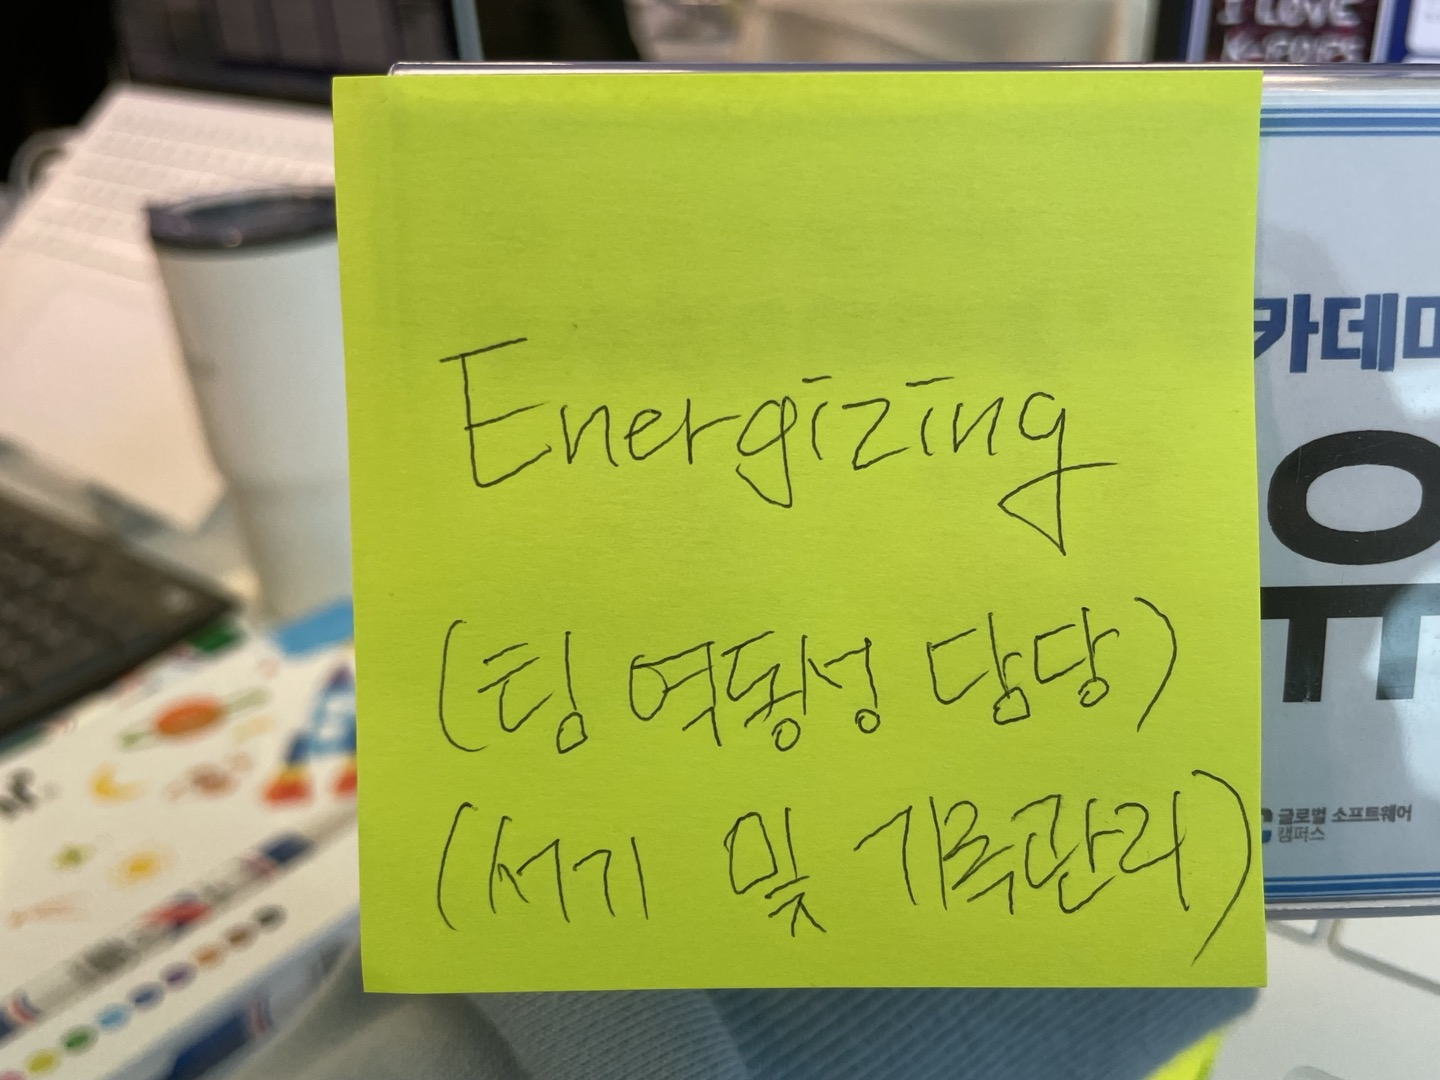 I LOVE
Energizing
(팅 역동성 담당)
(서기 및 기록관리)
카데미
유
글로벌 소프트웨어
캠퍼스